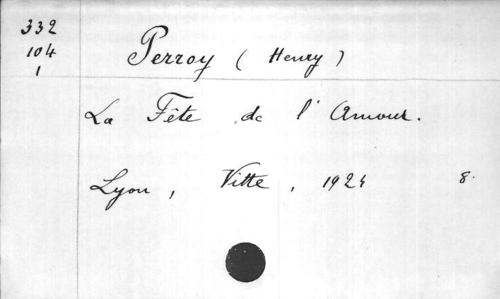 332
104
1
Perroy ( Henry )
La Fête de l' Amour.
Lyon, Vitte, 1924 8.